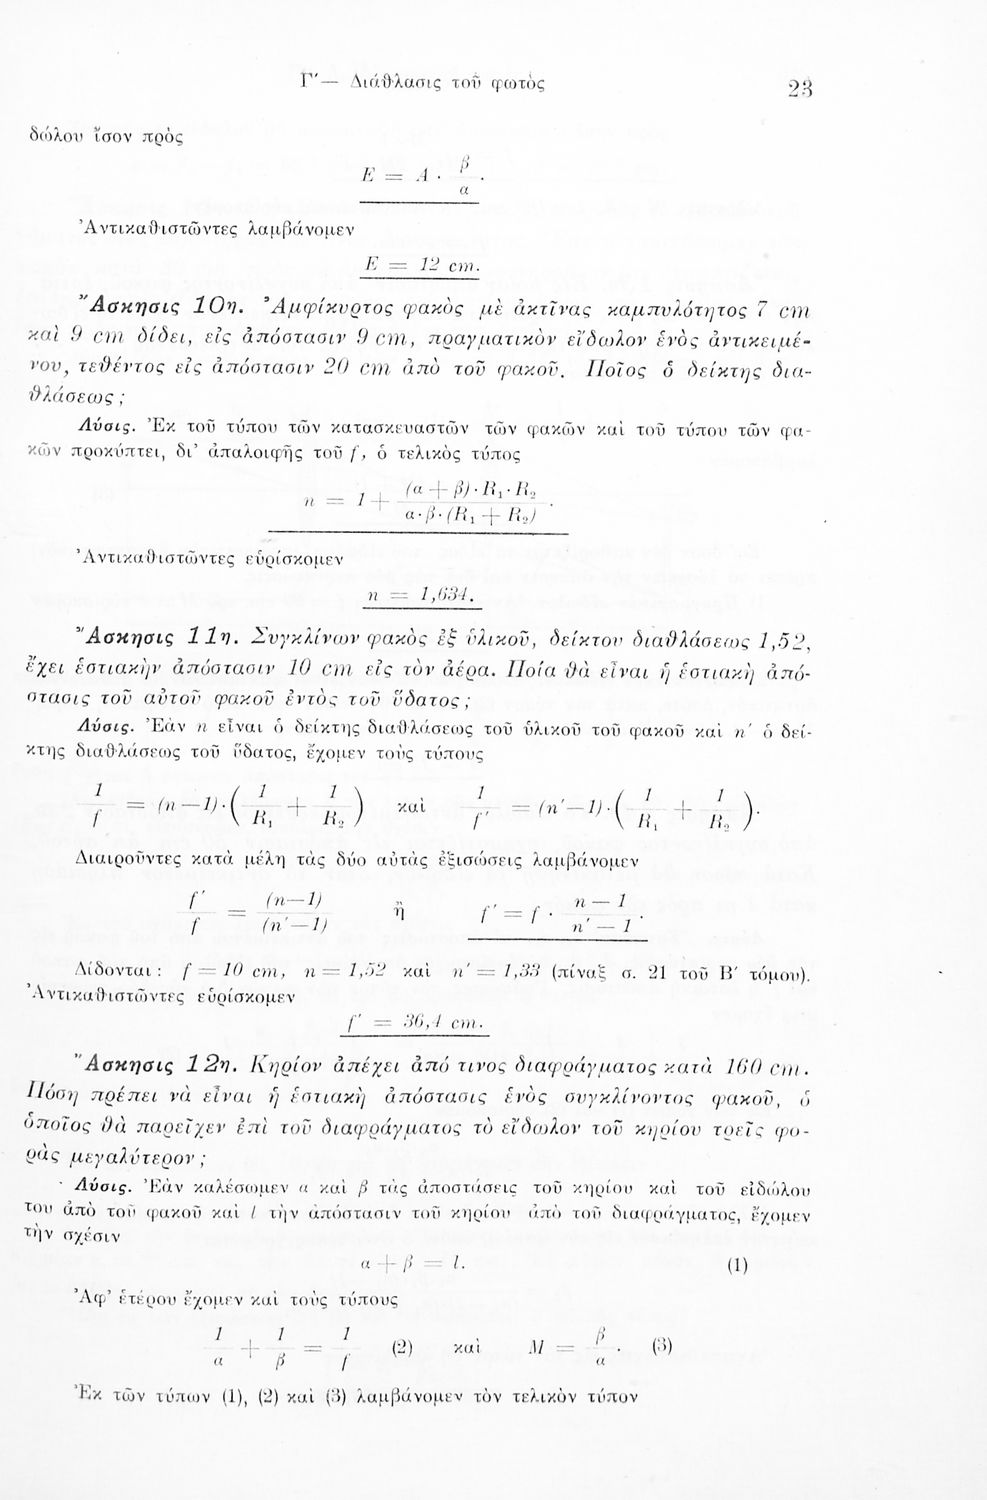 Γ′— Διάθλασις τοῦ φωτὸς 23
δώλου ἴσον πρὸς
E = A · β/α .
Ἀντικαθιστῶντες λαμβάνομεν
E = 12 cm.
Ἄσκησις 10η. Ἀμφίκυρτος φακὸς μὲ ἀκτῖνας καμπυλότητος 7 cm
καὶ 9 cm δίδει, εἰς ἀπόστασιν 9 cm, πραγματικὸν εἴδωλον ἑνὸς ἀντικειμέ-
νου, τεθέντος εἰς ἀπόστασιν 20 cm ἀπὸ τοῦ φακοῦ. Ποῖος ὁ δείκτης δια-
θλάσεως ;
Λύσις. Ἐκ τοῦ τύπου τῶν κατασκευαστῶν τῶν φακῶν καὶ τοῦ τύπου τῶν φα-
κῶν προκύπτει, δι’ ἀπαλοιφῆς τοῦ f, ὁ τελικὸς τύπος
n = 1 + (α + β)·R₁·R₂ / α·β·(R₁ + R₂) .
Ἀντικαθιστῶντες εὑρίσκομεν
n = 1,634.
Ἄσκησις 11η. Συγκλίνων φακὸς ἐξ ὑλικοῦ, δείκτου διαθλάσεως 1,52,
ἔχει ἑστιακὴν ἀπόστασιν 10 cm εἰς τὸν ἀέρα. Ποία θὰ εἶναι ἡ ἑστιακὴ ἀπό-
στασις τοῦ αὐτοῦ φακοῦ ἐντὸς τοῦ ὕδατος ;
Λύσις. Ἐὰν n εἶναι ὁ δείκτης διαθλάσεως τοῦ ὑλικοῦ τοῦ φακοῦ καὶ n′ ὁ δεί-
κτης διαθλάσεως τοῦ ὕδατος, ἔχομεν τοὺς τύπους
1/f = (n—1)·(1/R₁ + 1/R₂) καὶ 1/f′ = (n′—1)·(1/R₁ + 1/R₂).
Διαιροῦντες κατὰ μέλη τὰς δύο αὐτὰς ἐξισώσεις λαμβάνομεν
f′/f = (n—1)/(n′—1) ἢ f′ = f · n — 1/n′ — 1 .
Δίδονται : f = 10 cm, n = 1,52 καὶ n′ = 1,33 (πίναξ σ. 21 τοῦ Β′ τόμου).
Ἀντικαθιστῶντες εὑρίσκομεν
f′ = 36,4 cm.
Ἄσκησις 12η. Κηρίον ἀπέχει ἀπό τινος διαφράγματος κατὰ 160 cm.
Πόση πρέπει νὰ εἶναι ἡ ἑστιακὴ ἀπόστασις ἑνὸς συγκλίνοντος φακοῦ, ὁ
ὁποῖος θὰ παρεῖχεν ἐπὶ τοῦ διαφράγματος τὸ εἴδωλον τοῦ κηρίου τρεῖς φο-
ρὰς μεγαλύτερον ;
Λύσις. Ἐὰν καλέσωμεν α καὶ β τὰς ἀποστάσεις τοῦ κηρίου καὶ τοῦ εἰδώλου
του ἀπὸ τοῦ φακοῦ καὶ l τὴν ἀπόστασιν τοῦ κηρίου ἀπὸ τοῦ διαφράγματος, ἔχομεν
τὴν σχέσιν
α + β = l. (1)
Ἀφ’ ἑτέρου ἔχομεν καὶ τοὺς τύπους
1/α + 1/β = 1/f (2) καὶ M = β/α . (3)
Ἐκ τῶν τύπων (1), (2) καὶ (3) λαμβάνομεν τὸν τελικὸν τύπον